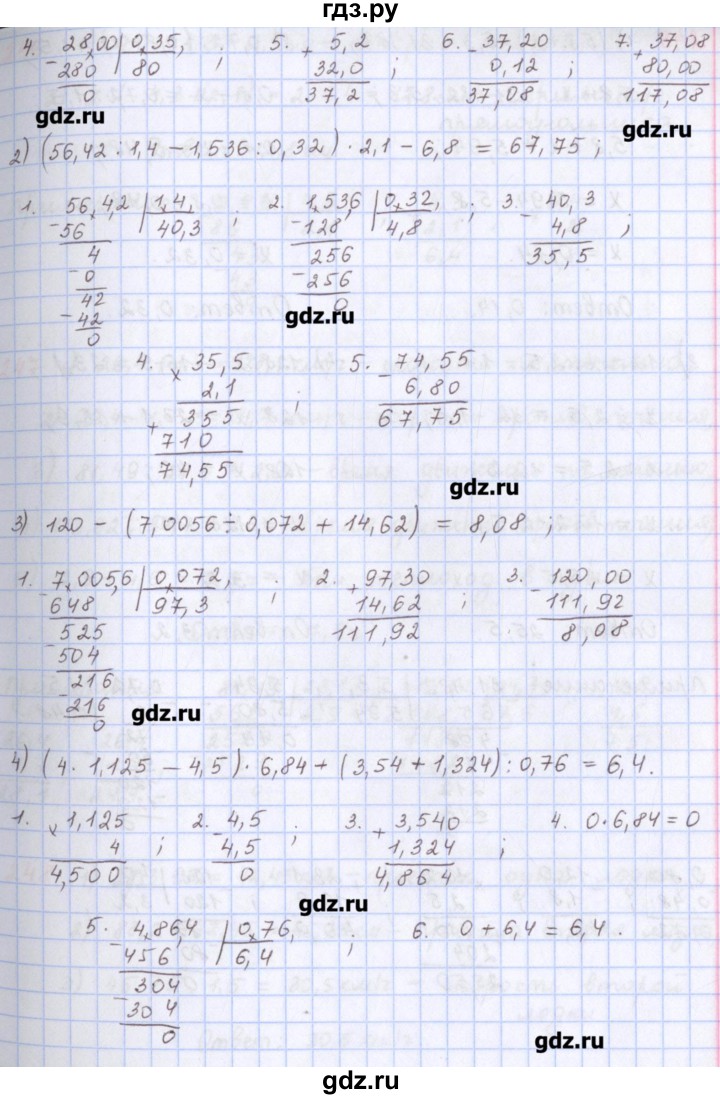 гдз.ру
4. 28,00 | 0,35, ; 5. 5,2 6. 37,20 7. 37,08
- 280 80 + 32,0 ; - 0,12 ; + 80,00
0 37,2 37,08 117,08
gdz.ru gdz.ru
2) (56,42 : 1,4 – 1,536 : 0,32) · 2,1 – 6,8 = 67,75 ;
1. 56,4,2 | 1,4, ; 2. 1,536 | 0,32, ; 3. 40,3
- 56 40,3 - 128 4,8 - 4,8 ;
4 256 35,5
- 0 - 256
42 0
- 42 gdz.ru
0
4. × 35,5 5. - 74,55
2,1 ; 6,80
+ 355 67,75
710
74,55 gdz.ru
3) 120 – (7,0056 ÷ 0,072 + 14,62) = 8,08 ;
1. 7,005,6 | 0,072, ; 2. 97,30 3. 120,00
- 648 97,3 + 14,62 ; - 111,92
525 111,92 8,08
- 504
216
- 216 gdz.ru
0
4) (4 · 1,125 – 4,5) · 6,84 + (3,54 + 1,324) : 0,76 = 6,4.
1. × 1,125 2. - 4,5 3. + 3,540 4. 0 · 6,84 = 0
4 ; 4,5 ; 1,324 ;
4,500 0 4,864
gdz.ru
5. 4,86,4 | 0,76, ; 6. 0 + 6,4 = 6,4.
- 456 6,4
304
- 304
0 gdz.ru
gdz.ru